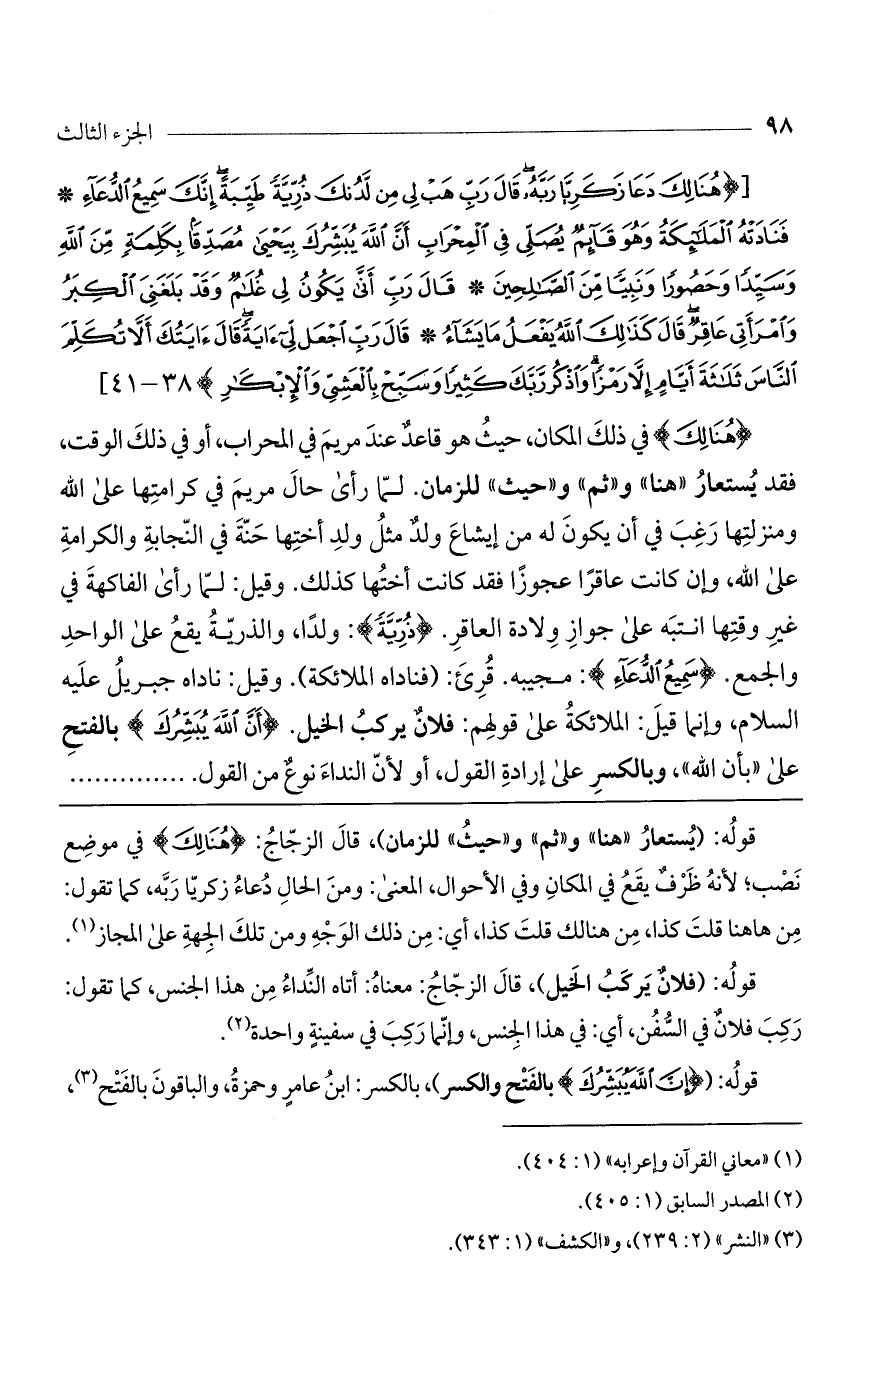 ٩٨ الجزء الثالث
[﴿هُنَالِكَ دَعَا زَكَرِيَّا رَبَّهُۥ ۖ قَالَ رَبِّ هَبْ لِى مِن لَّدُنكَ ذُرِّيَّةً طَيِّبَةً ۖ إِنَّكَ سَمِيعُ ٱلدُّعَآءِ *
فَنَادَتْهُ ٱلْمَلَٰٓئِكَةُ وَهُوَ قَآئِمٌ يُصَلِّى فِى ٱلْمِحْرَابِ أَنَّ ٱللَّهَ يُبَشِّرُكَ بِيَحْيَىٰ مُصَدِّقًۢا بِكَلِمَةٍ مِّنَ ٱللَّهِ
وَسَيِّدًا وَحَصُورًا وَنَبِيًّا مِّنَ ٱلصَّٰلِحِينَ * قَالَ رَبِّ أَنَّىٰ يَكُونُ لِى غُلَٰمٌ وَقَدْ بَلَغَنِىَ ٱلْكِبَرُ
وَٱمْرَأَتِى عَاقِرٌ ۖ قَالَ كَذَٰلِكَ ٱللَّهُ يَفْعَلُ مَا يَشَآءُ * قَالَ رَبِّ ٱجْعَل لِّىٓ ءَايَةً ۖ قَالَ ءَايَتُكَ أَلَّا تُكَلِّمَ
ٱلنَّاسَ ثَلَٰثَةَ أَيَّامٍ إِلَّا رَمْزًا ۗ وَٱذْكُر رَّبَّكَ كَثِيرًا وَسَبِّحْ بِٱلْعَشِىِّ وَٱلْإِبْكَٰرِ﴾ ٣٨-٤١]
﴿هُنَالِكَ﴾ في ذلكَ المكان، حيثُ هو قاعدٌ عندَ مريمَ في المحراب، أو في ذلكَ الوقت،
فقد يُستعارُ «هنا» و«ثم» و«حيث» للزمان. لـمّا رأىٰ حالَ مريمَ في كرامتِها علىٰ الله
ومنزلتِها رَغِبَ في أن يكونَ له من إيشاعَ ولدٌ مثلُ ولدِ أختِها حَنّةَ في النّجابةِ والكرامةِ
علىٰ الله، وإن كانت عاقرًا عجوزًا فقد كانت أختُها كذلك. وقيل: لـمّا رأىٰ الفاكهةَ في
غيرِ وقتِها انـتبَه علىٰ جوازِ وِلادة العاقرِ. ﴿ذُرِّيَّةً﴾: ولدًا، والذريّـةُ يقعُ علىٰ الواحدِ
والجمع. ﴿سَمِيعُ ٱلدُّعَآءِ﴾: مـجيبه. قُرِئَ: (فناداه الملائكة). وقيل: ناداه جبـريلُ عليه
السلام، وإنما قيلَ: الملائكةُ علىٰ قولهِم: فلانٌ يركبُ الخيل. ﴿أَنَّ ٱللَّهَ يُبَشِّرُكَ﴾ بالفتحِ
علىٰ «بأن الله»، وبالكسرِ علىٰ إرادةِ القول، أو لأنّ النداءَ نوعٌ من القول. ..............
قولُه: (يُستعارُ «هنا» و«ثم» و«حيثُ» للزمان)، قالَ الزجّاجُ: ﴿هُنَالِكَ﴾ في موضِع
نَصْب؛ لأنهُ ظَرْفٌ يقَعُ في المكانِ وفي الأحوال، المعنىٰ: ومنَ الحالِ دُعاءُ زكريّا رَبَّه، كما تقول:
مِن هاهنا قلتَ كذا، مِن هنالك قلتَ كذا، أي: مِن ذلك الوَجْهِ ومن تلكَ الجِهةِ علىٰ المجاز(١).
قولُه: (فلانٌ يَركَبُ الخَيل)، قالَ الزجّاجُ: معناهُ: أتاه النِّداءُ مِن هذا الجنس، كما تقول:
رَكِبَ فلانٌ في السُّفُن، أي: في هذا الجِنس، وإنّما رَكِبَ في سفينةٍ واحدة(٢).
قولُه: (﴿إِنَّ ٱللَّهَ يُبَشِّرُكَ﴾ بالفَتْح والكسر)، بالكسر: ابنُ عامرٍ وحمزةُ، والباقونَ بالفَتْح(٣)،
(١) «معاني القرآن وإعرابه» (١: ٤٠٤).
(٢) المصدر السابق (١: ٤٠٥).
(٣) «النشر» (٢: ٢٣٩)، و«الكشف» (١: ٣٤٣).